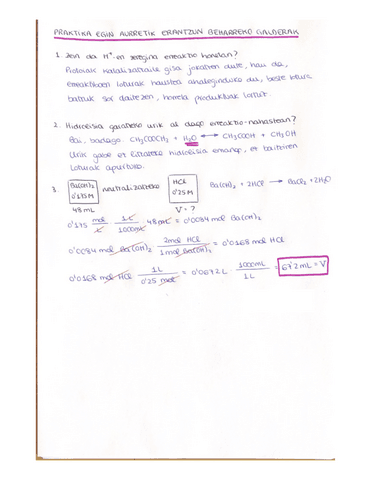 PRAKTIKA EGIN AURRETIK ERANTZUN BEHARREKO GALDERAK
1. Zein da H⁺-en zeregina erreakzio honetan?
Protoiak katalizatzaile gisa jokatzen dute, hau da,
erreaktiboen loturak haustea ahalbidetuko du, beste lotura
batzuk sor daitezen, horrela produktuak lortuz.
2. Hidrolisia gertatzeko urik al dago erreakzio-nahastean?
Bai, badago. CH₃COOCH₃ + H₂O ⟷ CH₃COOH + CH₃OH
Urik gabe ez litzateke hidrolisia emango, ez baitziren
loturak apurtuko.
3. Ba(OH)₂ 0'175M neutralizatzeko HCl 0'25M Ba(OH)₂ + 2HCl → BaCl₂ + 2H₂O
48 mL V = ?
0'175 mol/L · 1L/1000mL · 48mL = 0'0084 mol Ba(OH)₂
0'0084 mol Ba(OH)₂ · 2mol HCl/1mol Ba(OH)₂ = 0'0168 mol HCl
0'0168 mol HCl · 1L/0'25 mol = 0'0672L · 1000mL/1L = 67'2 mL = V